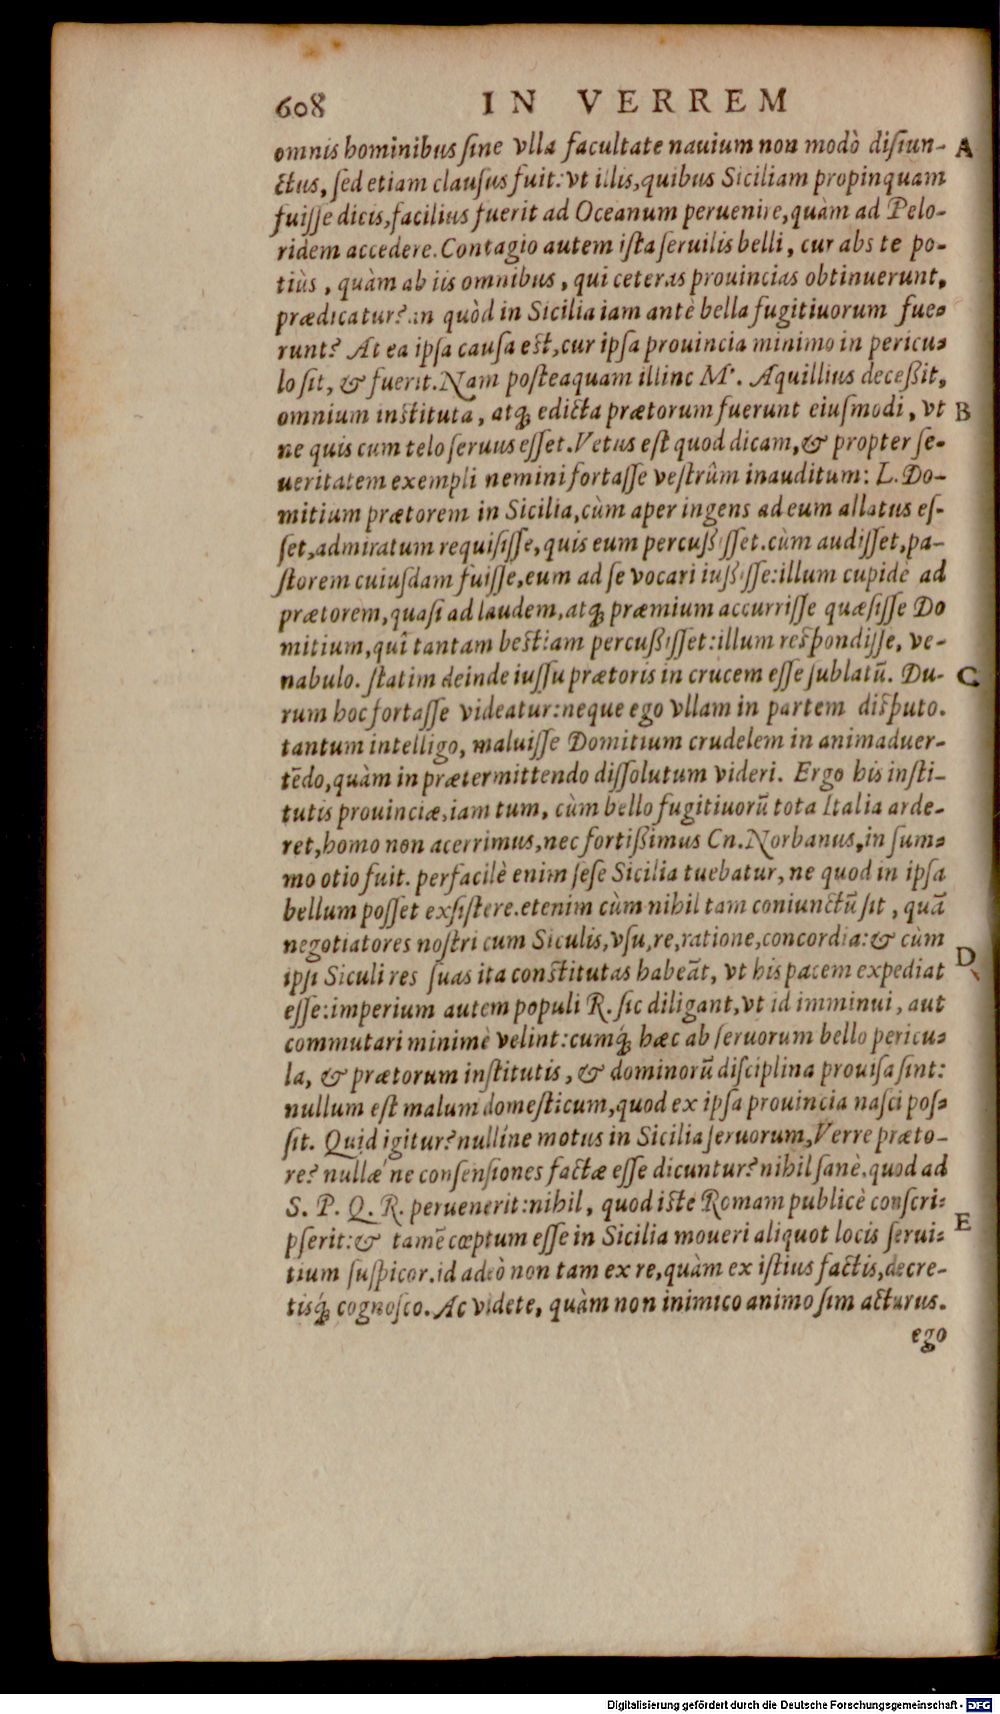 608 IN VERREM
omnis hominibus ſine vlla facultate nauium non modò diſiun- A
ctus, ſed etiam clauſus fuit: vt illis, quibus Siciliam propinquam
fuiſſe dicis, facilius fuerit ad Oceanum peruenire, quàm ad Pelo-
ridem accedere. Contagio autem iſta ſeruilis belli, cur abs te po-
tiùs, quàm ab iis omnibus, qui ceteras prouincias obtinuerunt,
prædicatur? an quòd in Sicilia iam antè bella fugitiuorum fue-
runt? At ea ipſa cauſa eſt, cur ipſa prouincia minimo in pericu-
lo ſit, & fuerit. Nam poſteaquam illinc M'. Aquillius deceßit,
omnium inſtituta, atq; edicta prætorum fuerunt eiuſmodi, vt B
ne quis cum telo ſeruus eſſet. Vetus eſt quod dicam, & propter ſe-
ueritatem exempli nemini fortaſſe veſtrûm inauditum: L. Do-
mitium prætorem in Sicilia, cùm aper ingens ad eum allatus eſ-
ſet, admiratum requiſiſſe, quis eum percußiſſet. cùm audiſſet, pa-
ſtorem cuiuſdam fuiſſe, eum ad ſe vocari iußiſſe: illum cupidè ad
prætorem, quaſi ad laudem, atq; præmium accurriſſe quæſiſſe Do
mitium, quî tantam beſtiam percußiſſet: illum reſpondiſſe, ve-
nabulo. ſtatim deinde iuſſu prætoris in crucem eſſe ſublatũ. Du- C
rum hoc fortaſſe videatur: neque ego vllam in partem diſputo.
tantum intelligo, maluiſſe Domitium crudelem in animaduer-
tẽdo, quàm in prætermittendo diſſolutum videri. Ergo his inſti-
tutis prouinciæ, iam tum, cùm bello fugitiuorũ tota Italia arde-
ret, homo non acerrimus, nec fortißimus Cn. Norbanus, in ſum-
mo otio fuit. perfacilè enim ſeſe Sicilia tuebatur, ne quod in ipſa
bellum poſſet exſiſtere. etenim cùm nihil tam coniunctũ ſit, quã
negotiatores noſtri cum Siculis, vſu, re, ratione, concordia: & cùm
ipſi Siculi res ſuas ita conſtitutas habeãt, vt his pacem expediat D
eſſe: imperium autem populi R. ſic diligant, vt id imminui, aut
commutari minimè velint: cumq́; hæc ab ſeruorum bello pericu-
la, & prætorum inſtitutis, & dominorũ diſciplina prouiſa ſint:
nullum eſt malum domeſticum, quod ex ipſa prouincia naſci poſ-
ſit. Quid igitur? nulline motus in Sicilia ſeruorum, Verre præto-
re? nullæ ne conſenſiones factæ eſſe dicuntur? nihil ſanè, quod ad
S. P. Q. R. peruenerit: nihil, quod iſte Romam publicè conſcri-
pſerit: & tamẽ cœptum eſſe in Sicilia moueri aliquot locis ſerui- E
tium ſuſpicor. id adeò non tam ex re, quàm ex iſtius factis, decre-
tisq́; cognoſco. Ac videte, quàm non inimico animo ſim acturus.
ego
Digitalisierung gefördert durch die Deutsche Forschungsgemeinschaft - DFG